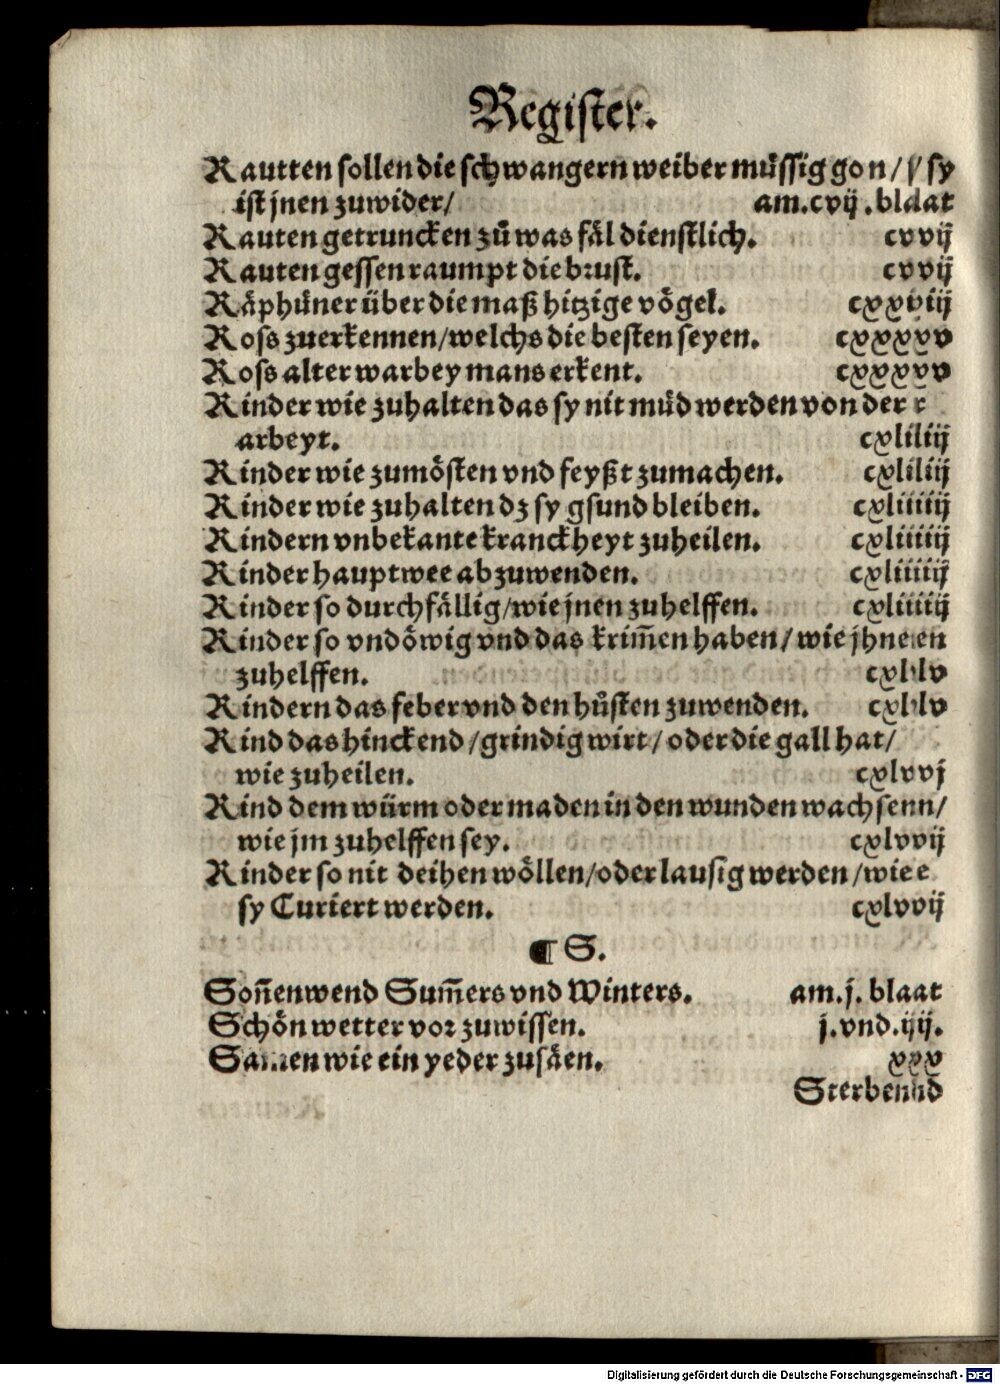 Register.
Rautten sollen die schwangern weiber müssig gon / sy
ist jnen zuwider / am.cvij.blaat
Rauten getruncken zů was fäl dienstlich. cvvij
Rauten gessen raumpt die brust. cvvij
Räphüner über die maß hitzige vögel. cxxviij
Ross zuerkennen / welchs die besten seyen. cxxxxv
Ross alter warbey mans erkent. cxxxxv
Rinder wie zuhalten das sy nit müd werden von der
arbeyt. cxliliij
Rinder wie zumösten vnd feyßt zumachen. cxliliij
Rinder wie zuhalten dz sy gsund bleiben. cxliiiiij
Rindern vnbekante kranckheyt zuheilen. cxliiiiij
Rinder hauptwee abzuwenden. cxliiiiij
Rinder so durchfällig / wie jnen zuhelffen. cxliiiiij
Rinder so vndöwig vnd das krim̃en haben / wie jhneen
zuhelffen. cxllv
Rindern das feber vnd den hůsten zuwenden. cxllv
Rind das hinckend / grindig wirt / oder die gall hat /
wie zuheilen. cxlvvj
Rind dem würm oder maden in den wunden wachsenn /
wie jm zuhelffen sey. cxlvvij
Rinder so nit deihen wöllen / oder lausig werden / wie
sy Curiert werden. cxlvvij
¶ S.
Son̄enwend Sum̄ers vnd Winters. am.j.blaat
Schön wetter vor zuwissen. j.vnd.iij.
Samen wie ein yeder zusäen. xxx
Sterbennd
Digitalisierung gefördert durch die Deutsche Forschungsgemeinschaft - DFG